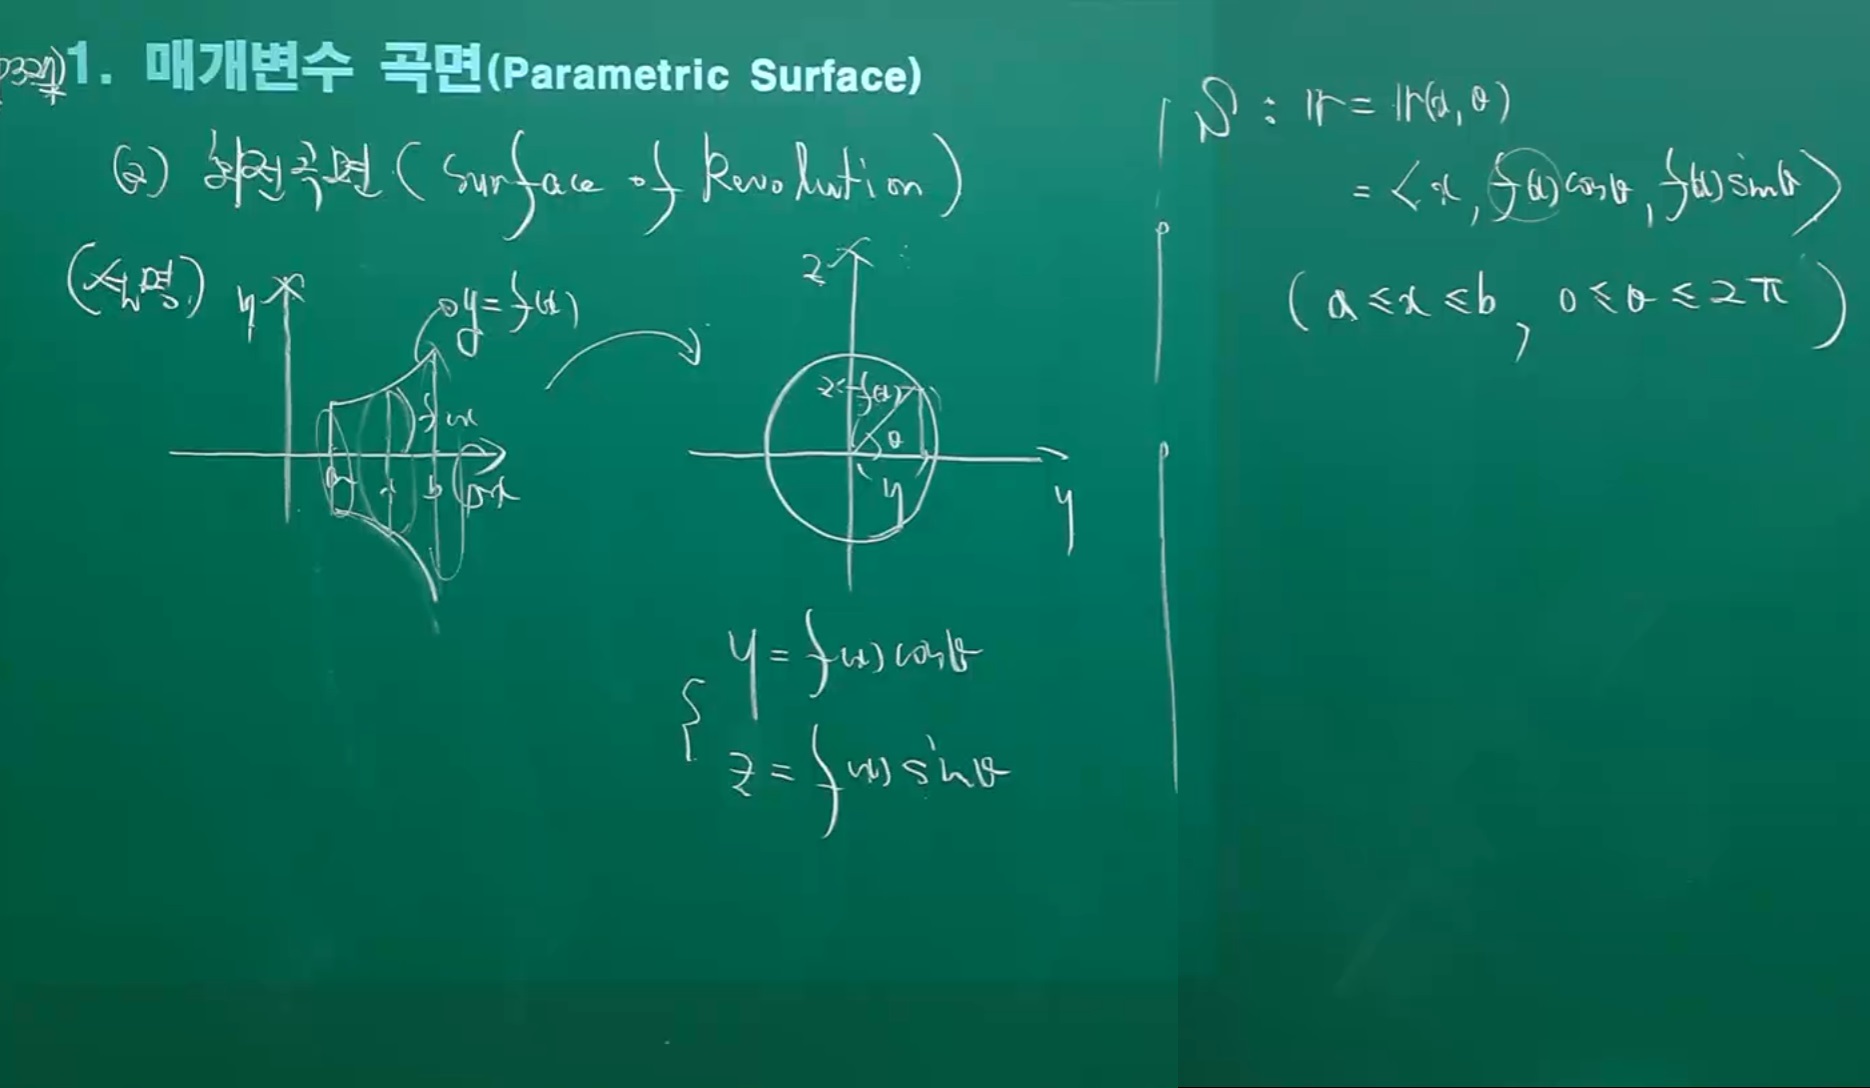 p324)
1. 매개변수 곡면(Parametric Surface)
(2) 회전곡면 (Surface of Revolution)
(설명)
y
y=f(x)
f(x)
a
x
b
x
z
z
f(x)
θ
y
y
y = f(x) cosθ
z = f(x) sinθ
S : r = r(x, θ)
= < x, f(x) cosθ, f(x) sinθ >
( a ≤ x ≤ b, 0 ≤ θ ≤ 2π )